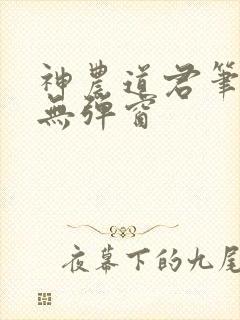 神農道君筆
無彈窗
夜幕下的九尾